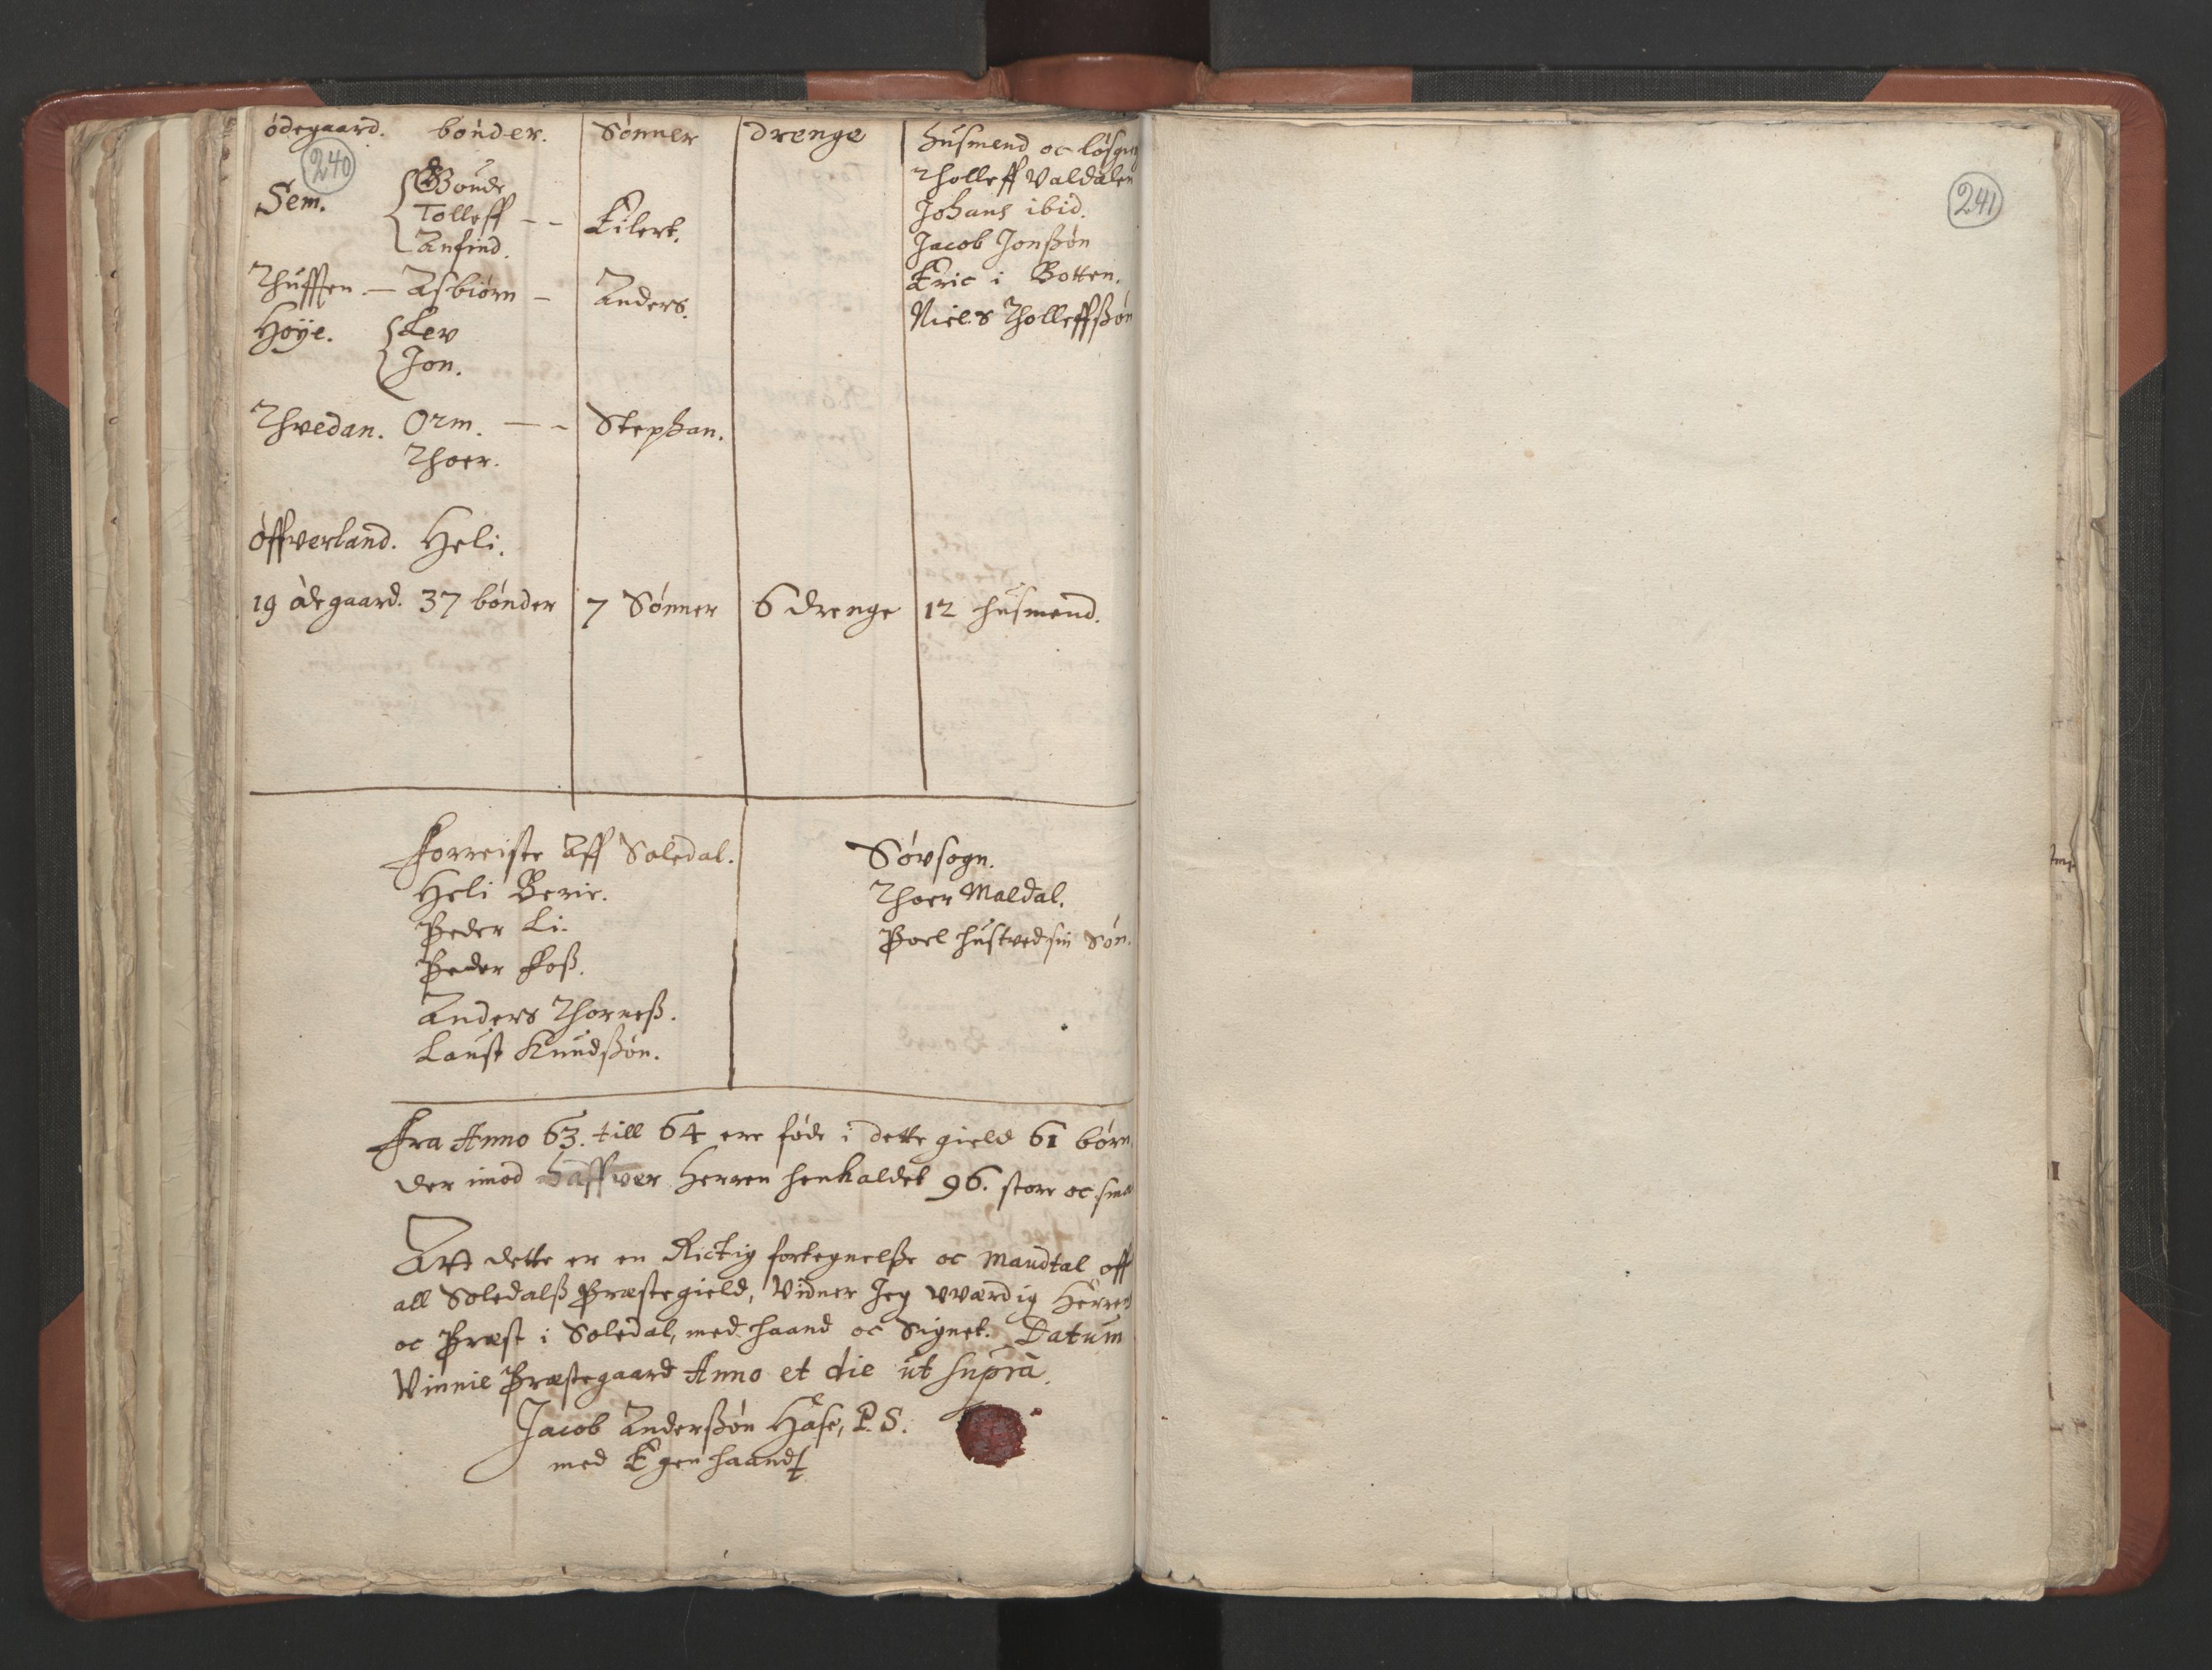 ödegaard. bönder. Sönner drenge husmend oc lösgie
240
Gönde Tholleff Valdalen
Sem. Tolleff - - Eilert. Johans ibid.
Anfind. Jacob Jonßön
Eric i Botten.
Thufften - Asbiörn - Anders. Niels Tholleffßön
Höÿe. Lev
Jon.
Thvedan. Orm. - - Stephan.
Thoer.
öffverland. Heli.
19 ödegaard. 37 bönder 7 Sönner 6 drenge 12 husmend.
Forreiste Aff Soledal.
Heli Berie.
Peder Li.
Peder Foß.
Anders Thorneß.
Laust Knudßön.
Sövsogn.
Thoer Maldal.
Poel Hustved sin Sön.
Fra Anno 63. till 64 ere föde i dette gield 61 börn
der imod haffver Herren henkaldet 96. store oc smaa
Att dette er en Rictig fortegnelße oc Mandtal off
all Soledalß Præstegield, Vidner Jeg uværdig Herrens
oc Præst i Soledal, med haand oc Signet. Datum
Vinnie Præstegaard Anno et die ut supra.
Jacob Anderßön Hase, P. S.
med Egen haand
241